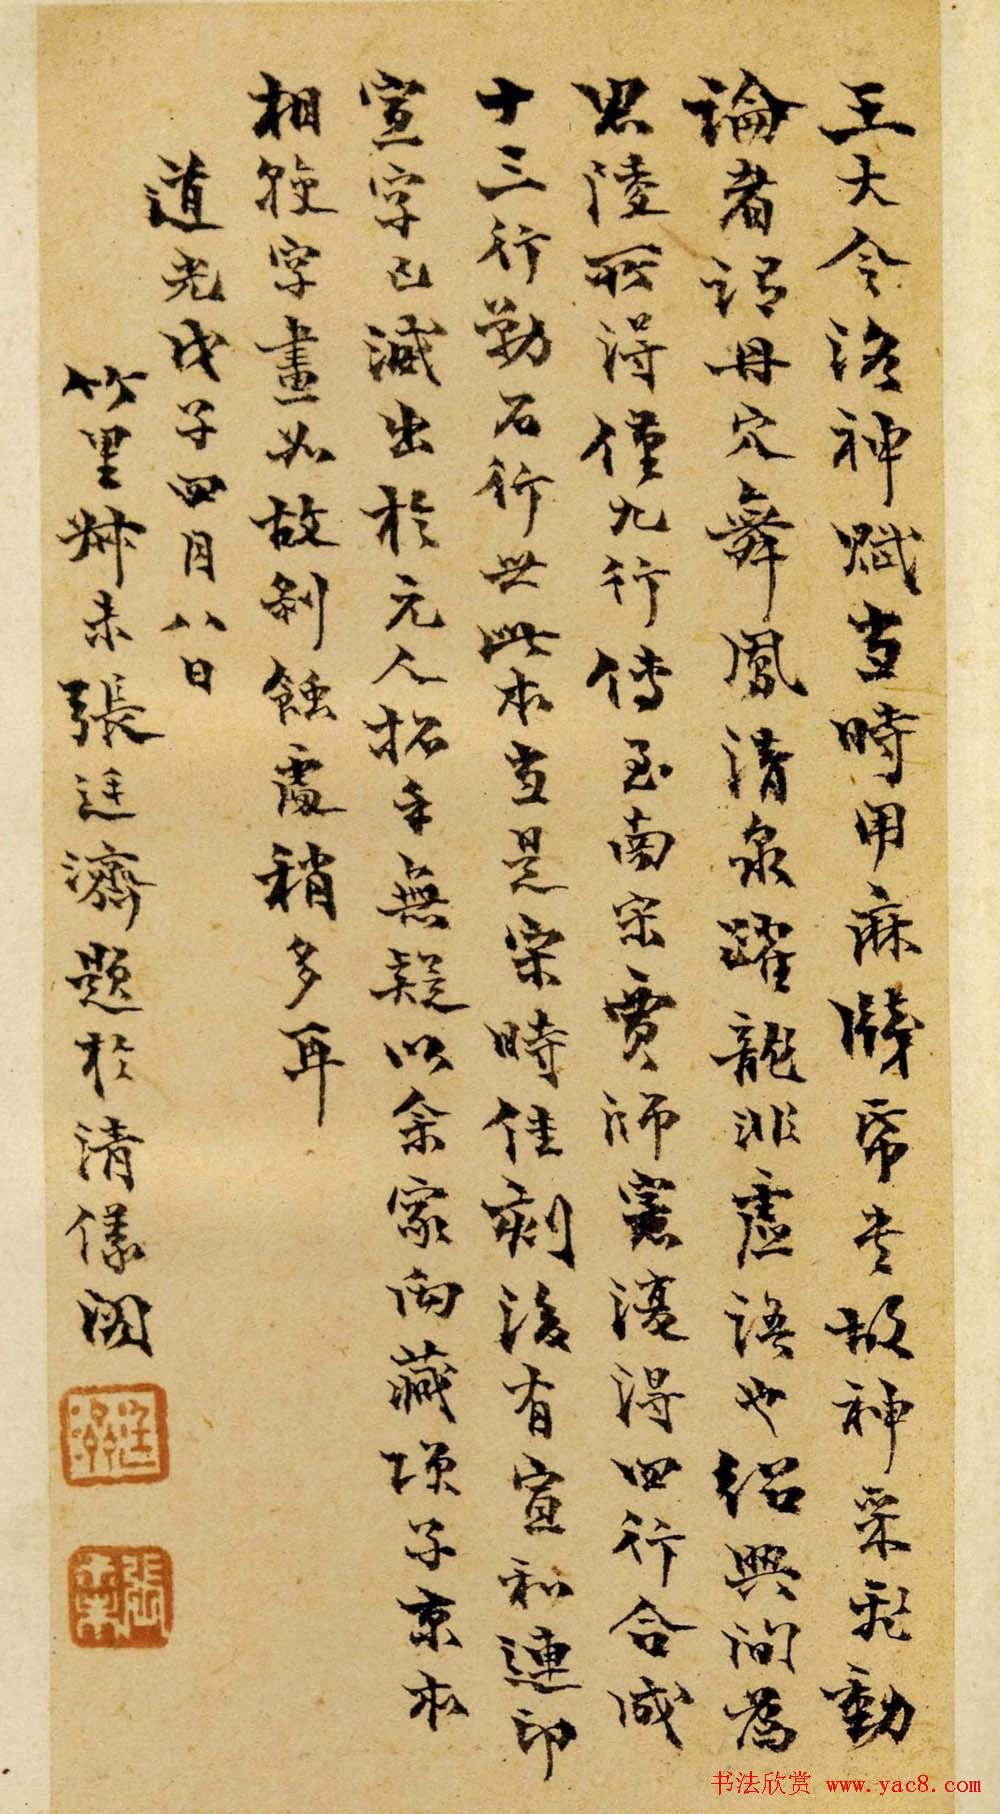 王大令洛神賦當時用麻牋帋書故神采飛動
論者謂丹穴舞鳳清泉躍龍非虛語也紹興間爲
思陵所得僅九行傳至南宋賈師憲復得四行合成
十三行勒石行世此本當是宋時佳刻後有宣和連印
宣字已減出於元人拓手無疑以余家向藏項子京本
相校字畫如故剝蝕處稍多耳
道光戊子四月八日
竹里叔未張廷濟題於清儀閣
廷濟
張叔未
书法欣赏 www.yac8.com